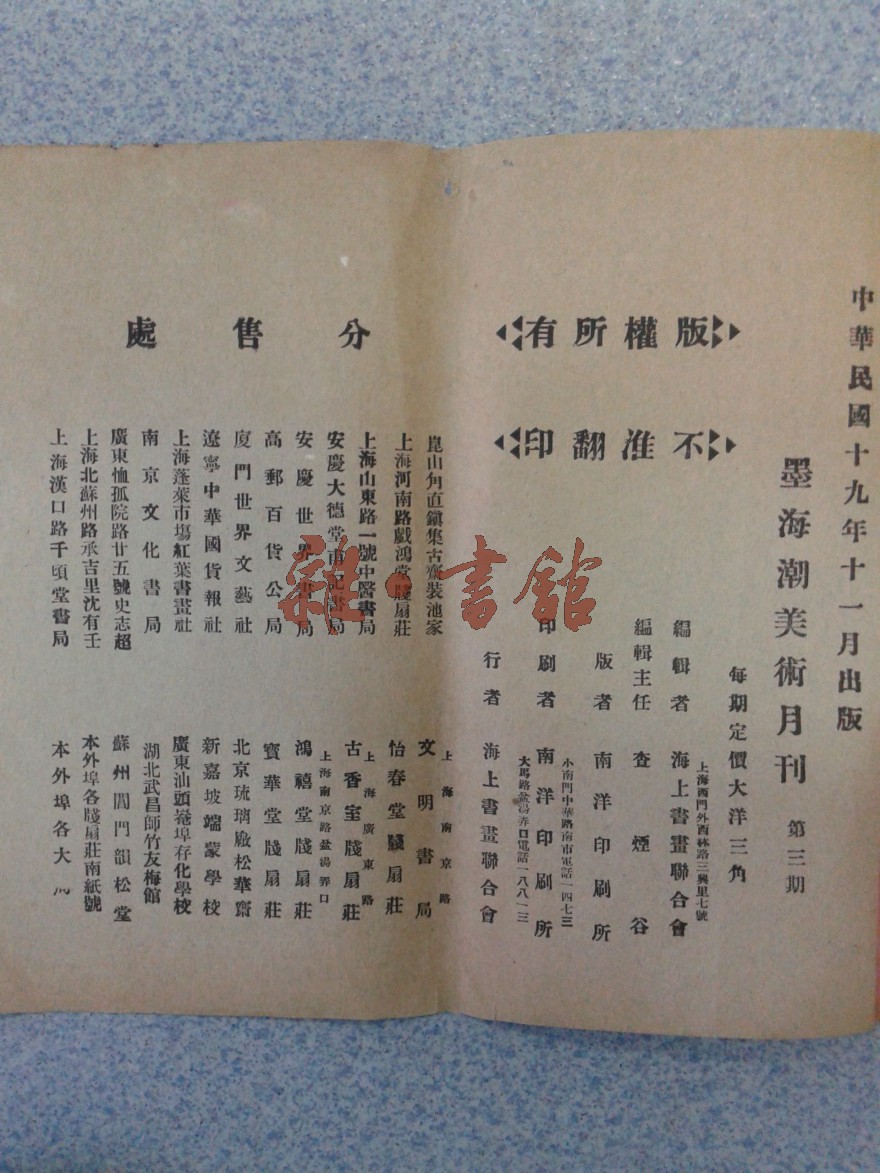 中華民國十九年十一月出版
墨海潮美術月刊 第三期
每期定價大洋三角
上海西門外西林路三興里七號
編輯者 海上書畫聯合會
編輯主任 查煙谷
版者 南洋印刷所
小南門中華路南市電話一四七三
印刷者 南洋印刷所
大馬路盆湯弄口電話一八八一三
行者 海上書畫聯合會
版權所有
不准翻印
分售處
崑山甪直鎮集古齋裝池家
上海河南路戲鴻堂牋扇莊
上海山東路一號中醫書局
安慶大德堂 書局
安慶世界書局
高郵百貨公局
廈門世界文藝社
遼寧中華國貨報社
上海蓬萊市場紅葉書畫社
南京文化書局
廣東恤孤院路廿五號史志超
上海北蘇州路承吉里沈有壬
上海漢口路千頃堂書局
上海南京路
文明書局
怡春堂牋扇莊
上海廣東路
古香室牋扇莊
上海南京路盆湯弄口
鴻禧堂牋扇莊
寶華堂牋扇莊
北京琉璃廠松華齋
新嘉坡端蒙學校
廣東汕頭菴埠存化學校
湖北武昌師竹友梅館
蘇州閶門韻松堂
本外埠各牋扇莊南紙號
本外埠各大 局
雜·書館